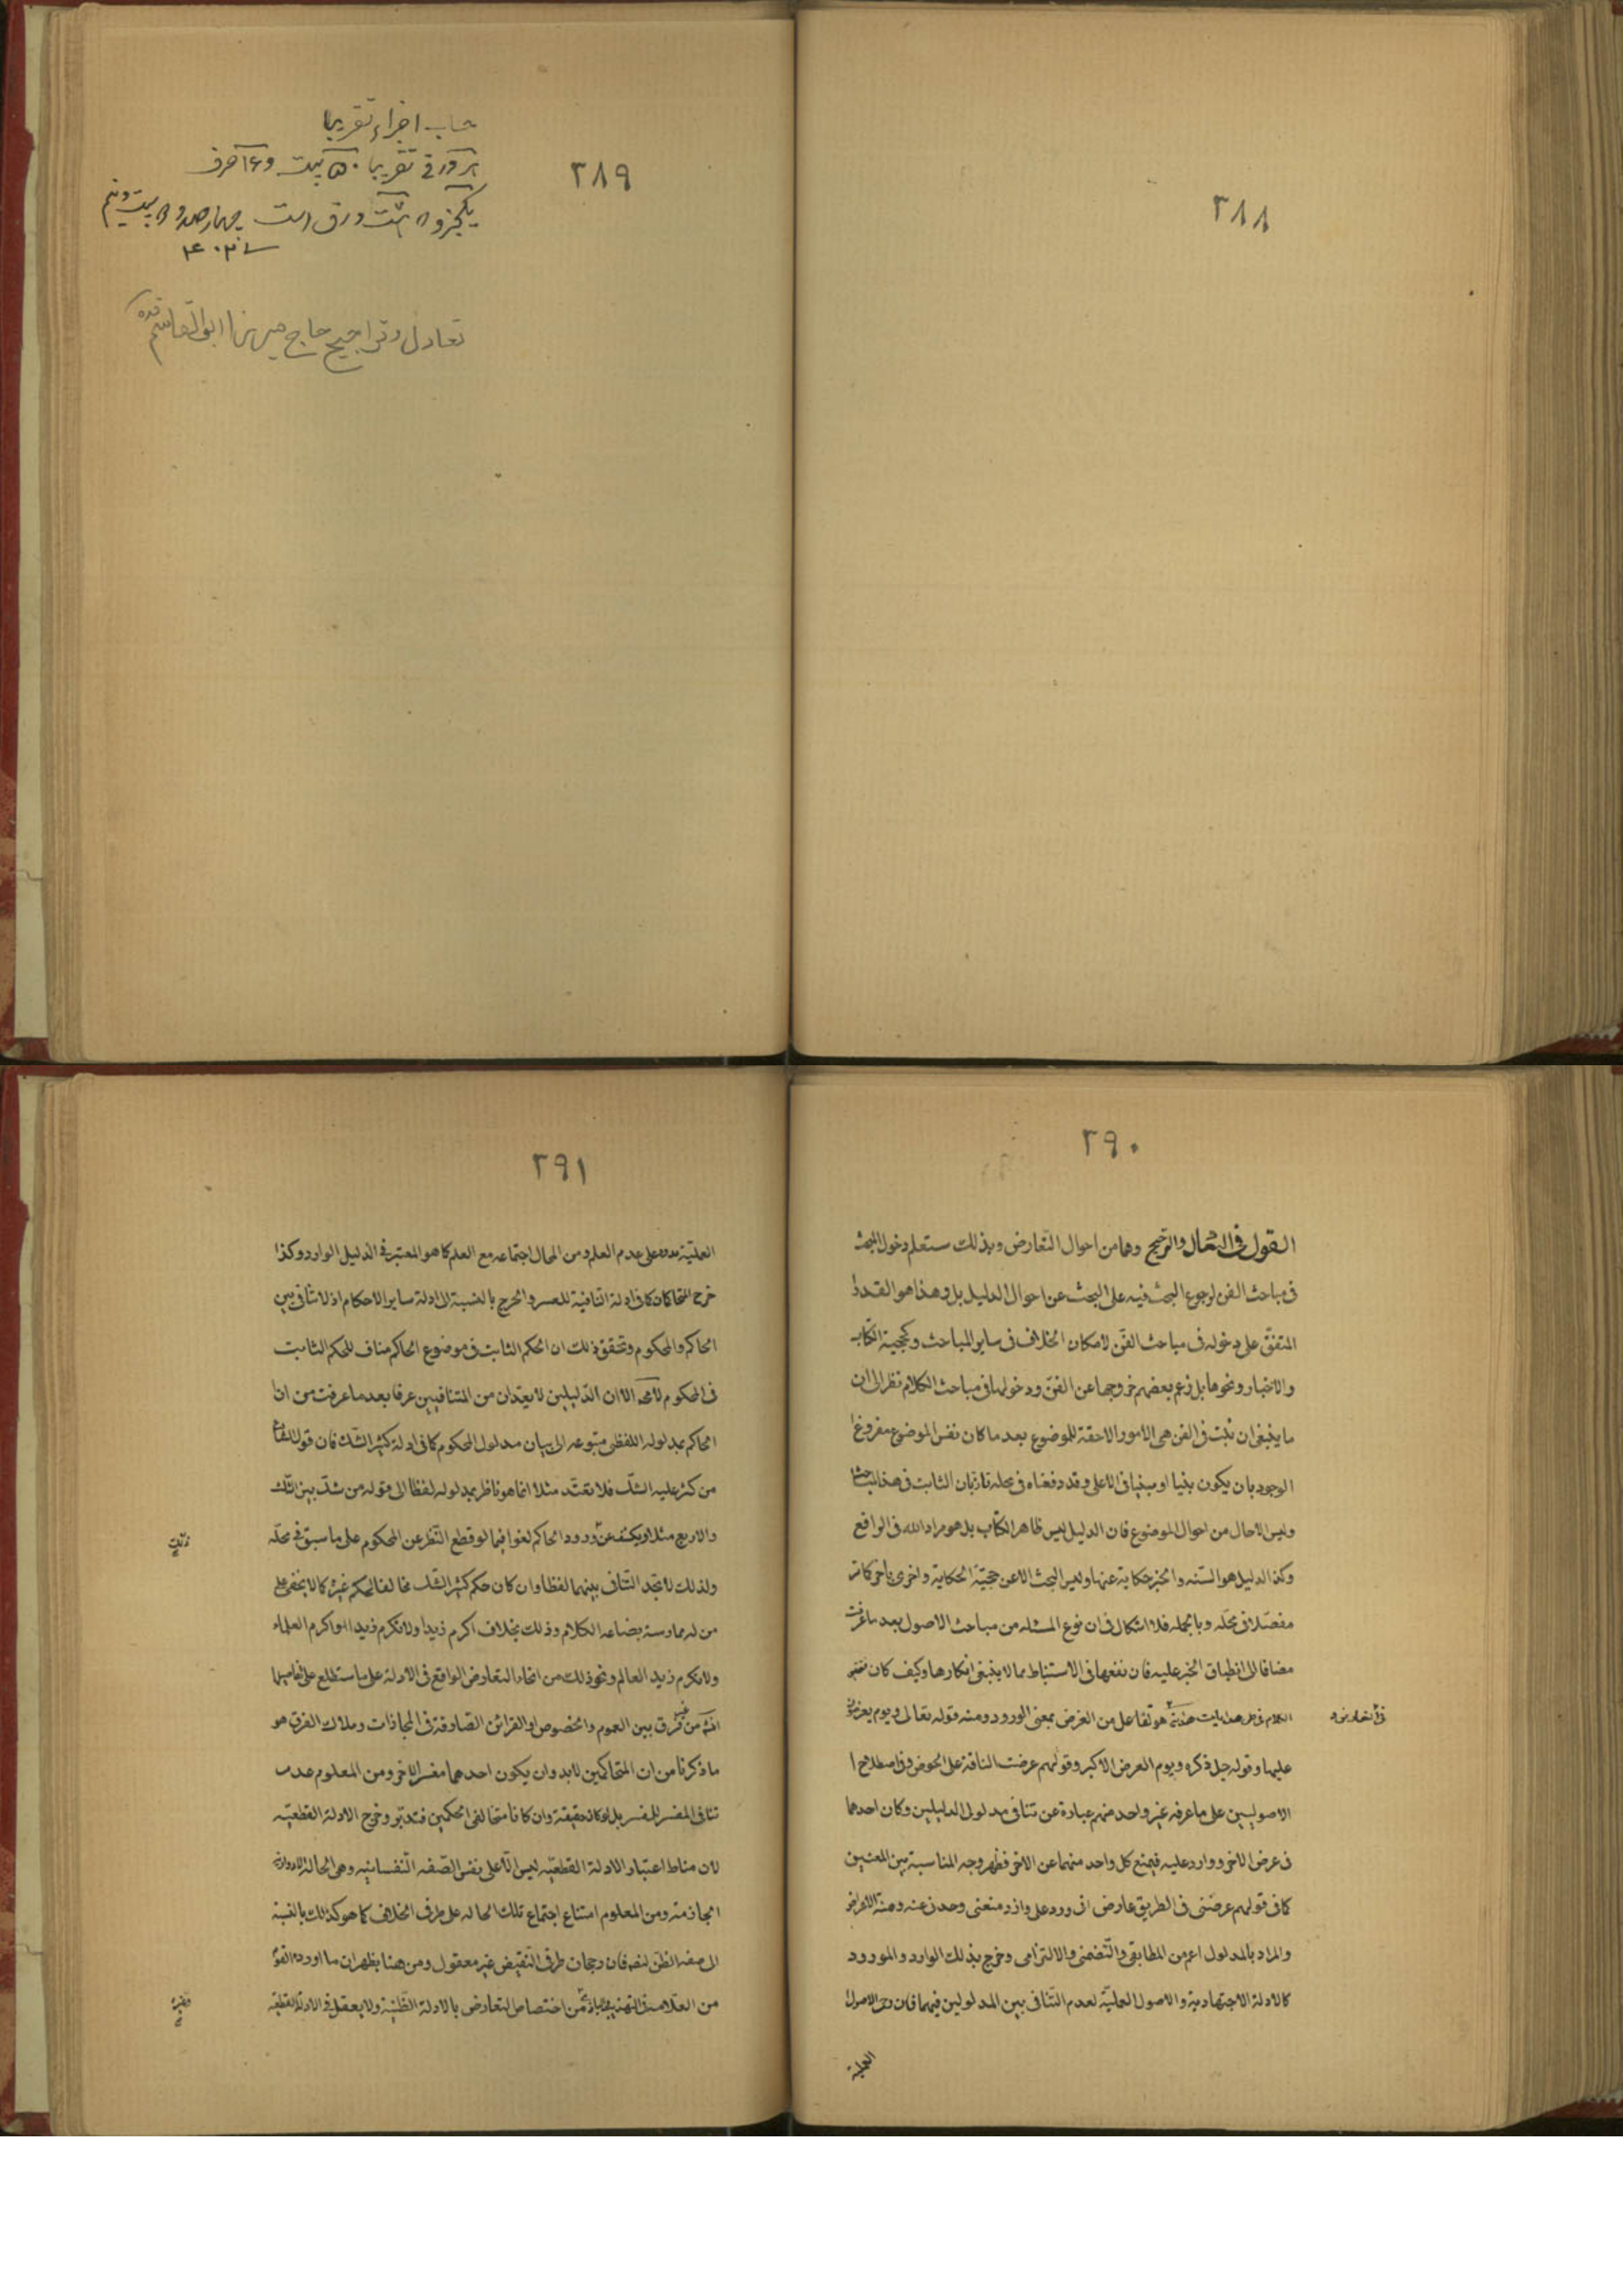 ٢٨٨
٢٨٩
حساب اجزاء تقريبا
هر ورقى تقريبا ٥٠ بيت و حرف
يكجزو هشت ورق است چهارصد و بيت
تعادل وتراجيح حاج ميرزا ابوالقاسم
٢٩٠
القول فى التعادل والترجيح وهما من احوال التعارض وبذلك ستعلم دخول البحث
فى مباحث الفن لرجوع البحث فيه على البحث عن احوال الدليل بل وهذا هو القدر
المتفق على دخوله فى مباحث الفن لامكان الخلاف فى ساير المباحث وكحجية الكتاب
والاخبار ونحوها بل زعم بعضهم خروجها عن الفن ودخولها فى مباحث الكلام نظر الى ان
ما ينبغى ان يثبت فى الفن هى الامور اللاحقة للموضوع بعد ما كان نفس الموضوع مفروغ
الوجود بان يكون بينا او مبينا فى الاعلى وقد دفعناه فى محله تارة بان الثابت فى هذه المباحث
وليس الا حال من احوال الموضوع فان الدليل ليس ظاهر الكتاب بل هو مراد الله فى الواقع
وكذا الدليل هو السنة والخبر حكاية عنها وليس البحث الا عن حجية الحكاية واخرى باخر كما مر
مفصلا فى محله وبالجملة فلا اشكال فى ان نوع المسئلة من مباحث الاصول بعد ما عرفت
مضافا الى انطباق الخبر عليه فان نفعها فى الاستنباط مما لا ينبغى انكارها وكيف كان
الكلام فى هدايات هداية هو تفاعل من العرض بمعنى الورود ومنه قوله تعالى ويوم يعرضون
فى التعارض
عليها وقوله جل ذكره ويوم العرض الاكبر وقولهم عرضت الناقة على الحوض وفى اصطلاح
الاصوليين على ما عرفه غير واحد منهم عبارة عن تنافى مدلولى الدليلين وكان احدهما
فى عرض الاخر ووارد عليه فيمنع كل واحد منهما عن الاخر فظهر وجه المناسبة بين المعنيين
كما فى قولهم عرضنى فى الطريق عارض اى ورد على وارد منعنى وصدنى عنه ومنه الاعراض
والمراد بالمدلول اعم من المطابقى والتضمنى والالتزامى وخرج بذلك الوارد والمورود
كالادلة الاجتهادية والاصول العملية لعدم التنافى بين المدلولين فيهما فان الاصول
العملية
٢٩١
العملية على عدم العلم ومن المحال اجتماعه مع العلم كما هو المعتبر فى الدليل الوارد وكذا
خرج المتحاكمان كما فى ادلة النافية للعسر والحرج بالنسبة الى ادلة ساير الاحكام اذ لا تنافى بين
الحاكم والمحكوم وتحقق ذلك ان الحكم الثابت فى موضوع الحاكم مناف للحكم الثابت
فى المحكوم لا محة الا ان الدليلين لا يعدان من المتنافيين عرفا بعد ما عرفت من ان
الحاكم بمدلوله اللفظى متبوعه الى بيان مدلول المحكوم كما فى ادلة كثير الشك فان قول القائل
من كثر عليه الشك فلا يعتد مثلا انما هو ناظر بمدلوله لفظا الى قوله من شك بين الثلث
والاربع مثلا ويكشف عن ورود الحاكم لغوا فيما لو قطع النظر عن المحكوم على ما سبق فى محله
ولذلك لا تجد التنافى بينهما لفظا وان كان حكم كثير الشك مخالفا لحكم غيره كما لا يخفى على
من له ممارسة بصناعة الكلام وذلك بخلاف اكرم زيدا ولا تكرم زيدا او اكرم العلماء
ولا تكرم زيد العالم ونحو ذلك من انحاء التعارض الواقع فى الادلة على ما ستطلع على تفاصيلها
انشاء من غير فرق بين العموم والخصوص او القرائن الصارفة فى المجازات وملاك الفرق هو
ما ذكرنا من ان المتحاكمين لا بد وان يكون احدهما مفسرا للاخر ومن المعلوم عدم
تنافى المفسر للمفسر بل لوكان حقيقة وان كانا متخالفى الحكمين فتدبر وخرج الادلة القطعية
لان مناط اعتبار الادلة القطعية ليس الا على نفس الصفة النفسانية وهى الحالة الادراكية
الجازمة ومن المعلوم امتناع اجتماع تلك الحالة على طرفى الخلاف كما هو كذلك بالنسبة
الى صفة الظن لنصه فان رجحان طرفى النقيض غير معقول ومن هنا يظهر ان ما اورده
من العلامة فى التهذيب من اختصاص التعارض بالادلة الظنية ولا يعقل فى الادلة القطعية